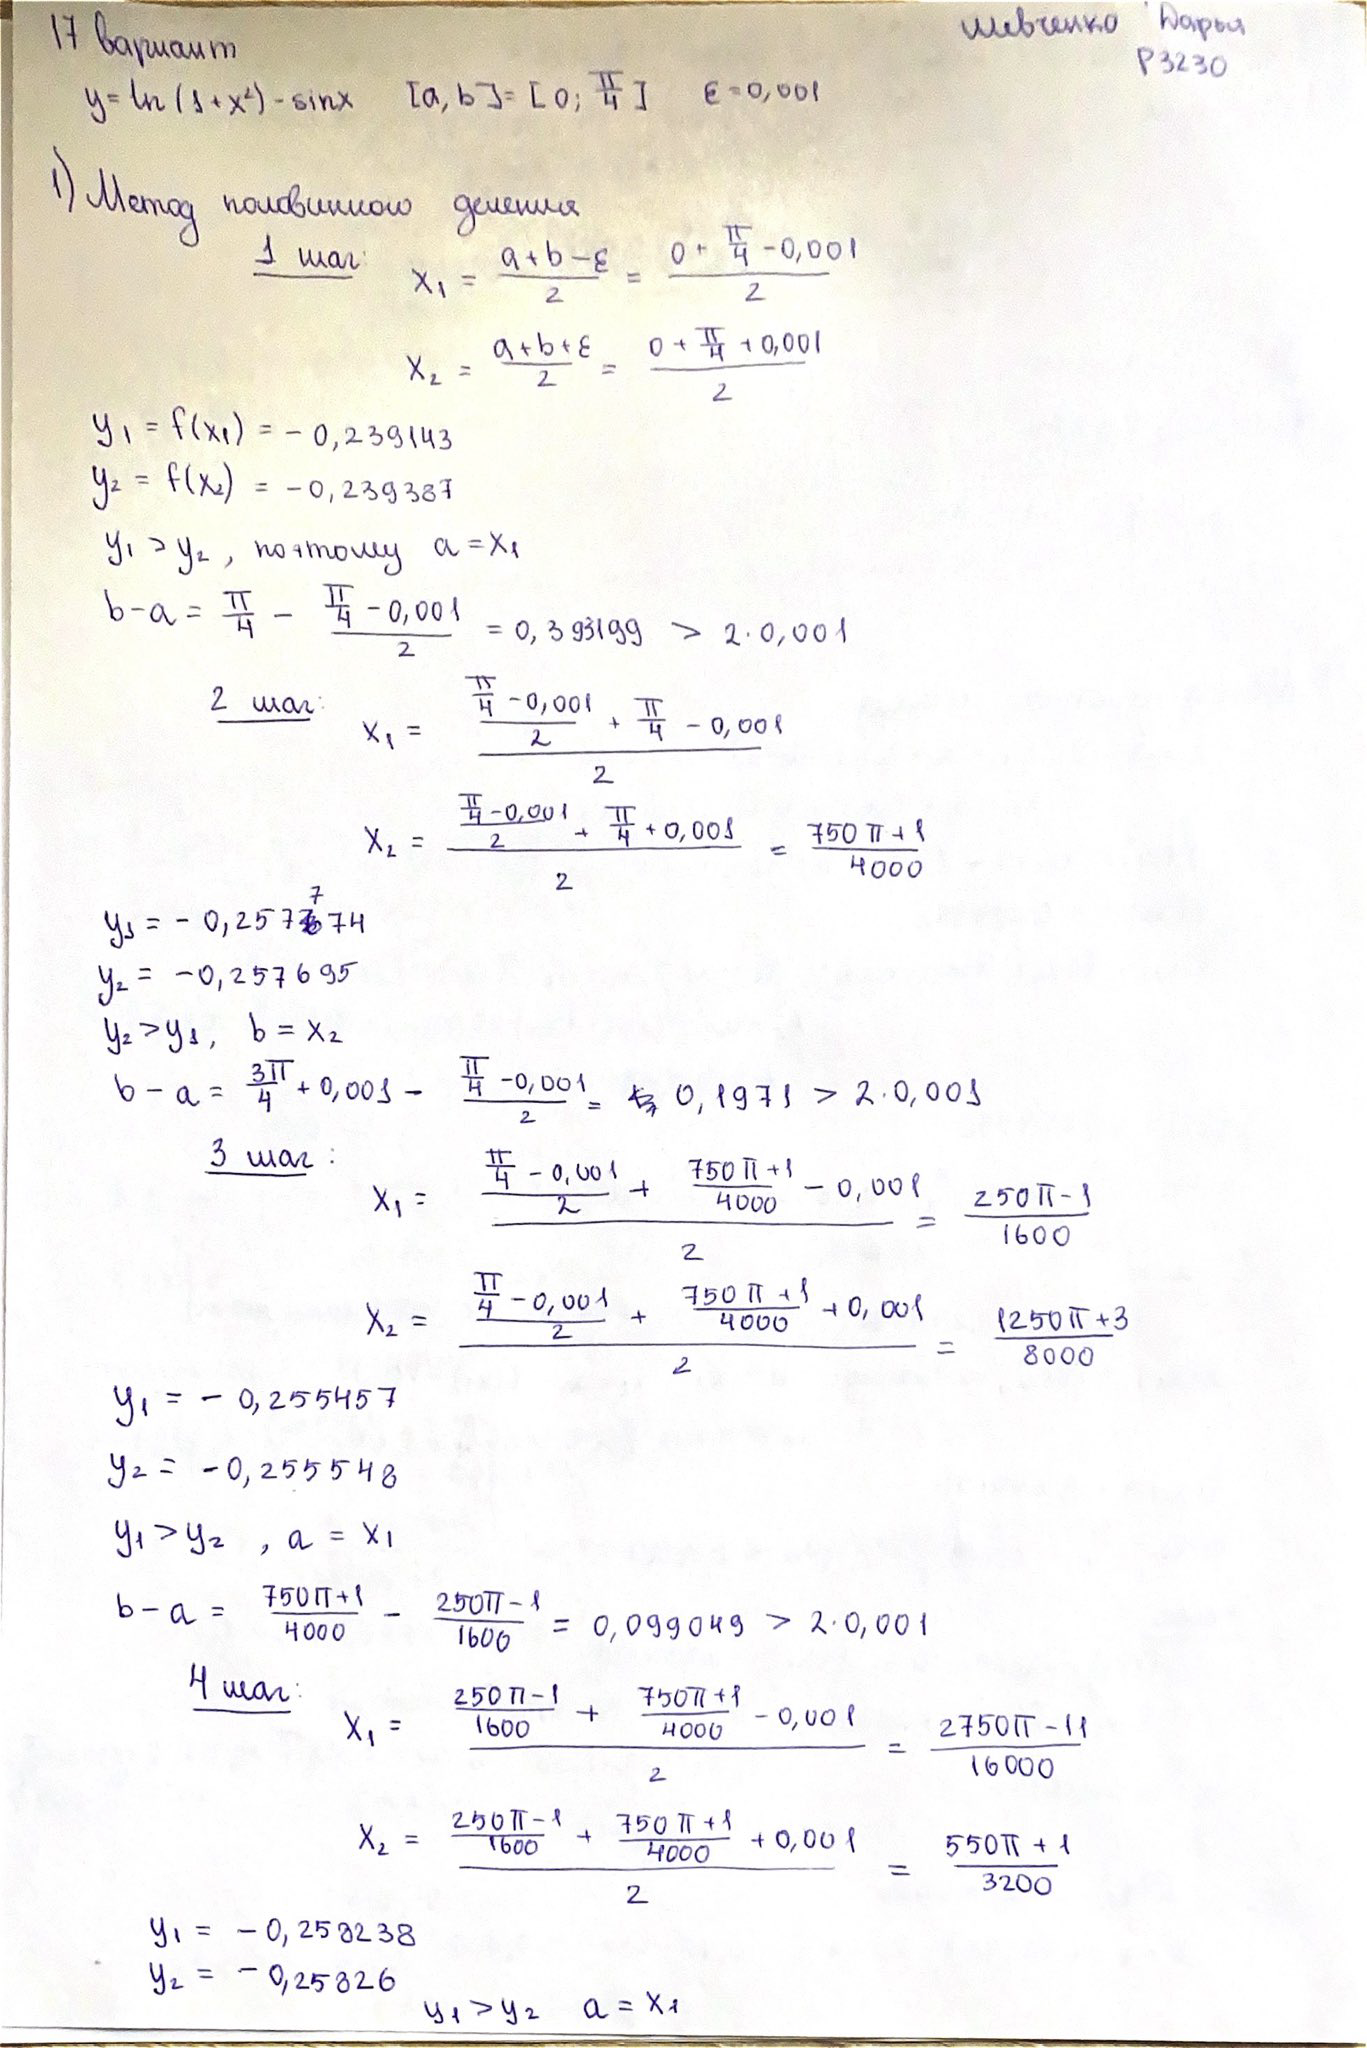 17 вариант
Шевченко Дарья
P3230
y = ln(1+x²) - sinx [a, b] = [0; π/4] ε = 0,001
1) Метод половинного деления
1 шаг: x₁ = (a+b-ε)/2 = (0 + π/4 - 0,001)/2
x₂ = (a+b+ε)/2 = (0 + π/4 + 0,001)/2
y₁ = f(x₁) = -0,239143
y₂ = f(x₂) = -0,239387
y₁ > y₂, поэтому a = x₁
b-a = π/4 - (π/4 - 0,001)/2 = 0,393199 > 2·0,001
2 шаг: x₁ = ((π/4 - 0,001)/2 + π/4 - 0,001)/2
x₂ = ((π/4 - 0,001)/2 + π/4 + 0,001)/2 = (750π+1)/4000
y₁ = -0,257774
y₂ = -0,257695
y₂ > y₁, b = x₂
b-a = 3π/4 + 0,001 - (π/4 - 0,001)/2 = 0,1971 > 2·0,001
3 шаг: x₁ = ((π/4 - 0,001)/2 + (750π+1)/4000 - 0,001)/2 = (250π-1)/1600
x₂ = ((π/4 - 0,001)/2 + (750π+1)/4000 + 0,001)/2 = (1250π+3)/8000
y₁ = -0,255457
y₂ = -0,255548
y₁ > y₂, a = x₁
b-a = (750π+1)/4000 - (250π-1)/1600 = 0,099049 > 2·0,001
4 шаг: x₁ = ((250π-1)/1600 + (750π+1)/4000 - 0,001)/2 = (2750π-11)/16000
x₂ = ((250π-1)/1600 + (750π+1)/4000 + 0,001)/2 = (550π+1)/3200
y₁ = -0,258238
y₂ = -0,25826
y₁ > y₂ a = x₁